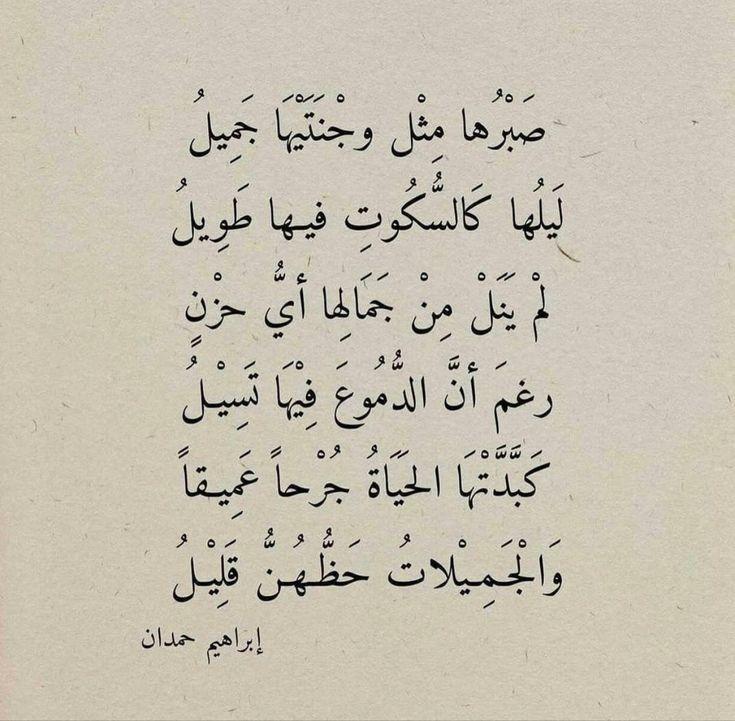 صَبْرُها مِثْل وجْنَتَيْهَا جَمِيلُ
لَيلُها كَالسُّكُوتِ فيها طَوِيلُ
لمْ يَنَلْ مِنْ جَمَالِها أيُّ حزْنٍ
رغمَ أنَّ الدُّمُوعَ فِيْهَا تَسِيْلُ
كَبَّدَّتْهَا الحَيَاةُ جُرْحاً عَمِيقاً
وَالْجَمِيْلاتُ حَظُّهُنُّ قَلِيْلُ
إبراهيم حمدان